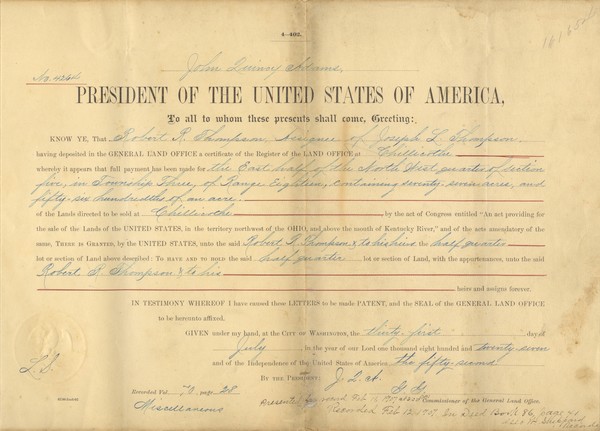 4-402.
John Quincy Adams,
No. 4244
PRESIDENT OF THE UNITED STATES OF AMERICA,
To all to whom these presents shall come, Greeting:
KNOW YE, That Robert R. Thompson, Assignee of Joseph L. Thompson
having deposited in the GENERAL LAND OFFICE a certificate of the Register of the LAND OFFICE at Chillicothe
whereby it appears that full payment has been made for the East half of the North West quarter of section
five, in Township Three, of Range Eighteen, containing seventy-seven acres, and
fifty-six hundredths of an acre,
of the Lands directed to be sold at Chillicothe by the act of Congress entitled "An act providing for
the sale of the Lands of the UNITED STATES, in the territory northwest of the OHIO, and above the mouth of Kentucky River," and of the acts amendatory of the
same, THERE IS GRANTED, by the UNITED STATES, unto the said Robert R. Thompson & to his heirs the half quarter
lot or section of Land above described: TO HAVE AND TO HOLD the said half quarter lot or section of Land, with the appurtenances, unto the said
Robert R. Thompson & to his
heirs and assigns forever.
IN TESTIMONY WHEREOF I have caused these LETTERS to be made PATENT, and the SEAL of the GENERAL LAND OFFICE
to be hereunto affixed.
GIVEN under my hand, at the CITY OF WASHINGTON, the thirty-first day of
July, in the year of our Lord one thousand eight hundred and twenty-seven
and of the Independence of the United States of America the fifty-second
L.S.
BY THE PRESIDENT: J. Q. A.
G. G.
Commissioner of the General Land Office.
Recorded Vol. 70, page 28
Miscellaneous
Presented for record Feb
Recorded Feb 12, In Deed Book 86, page